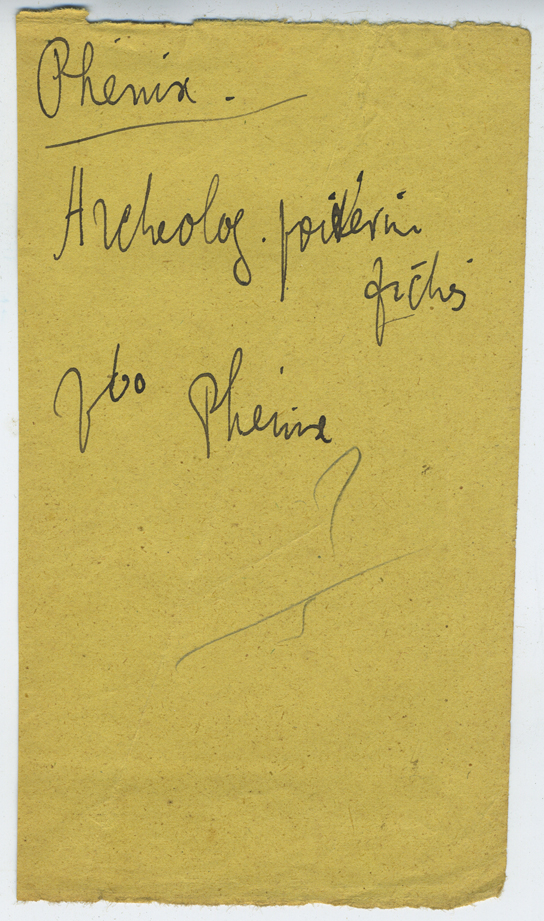 Phénix.
Archeolog. poitevin
fiches
vbo Phénix